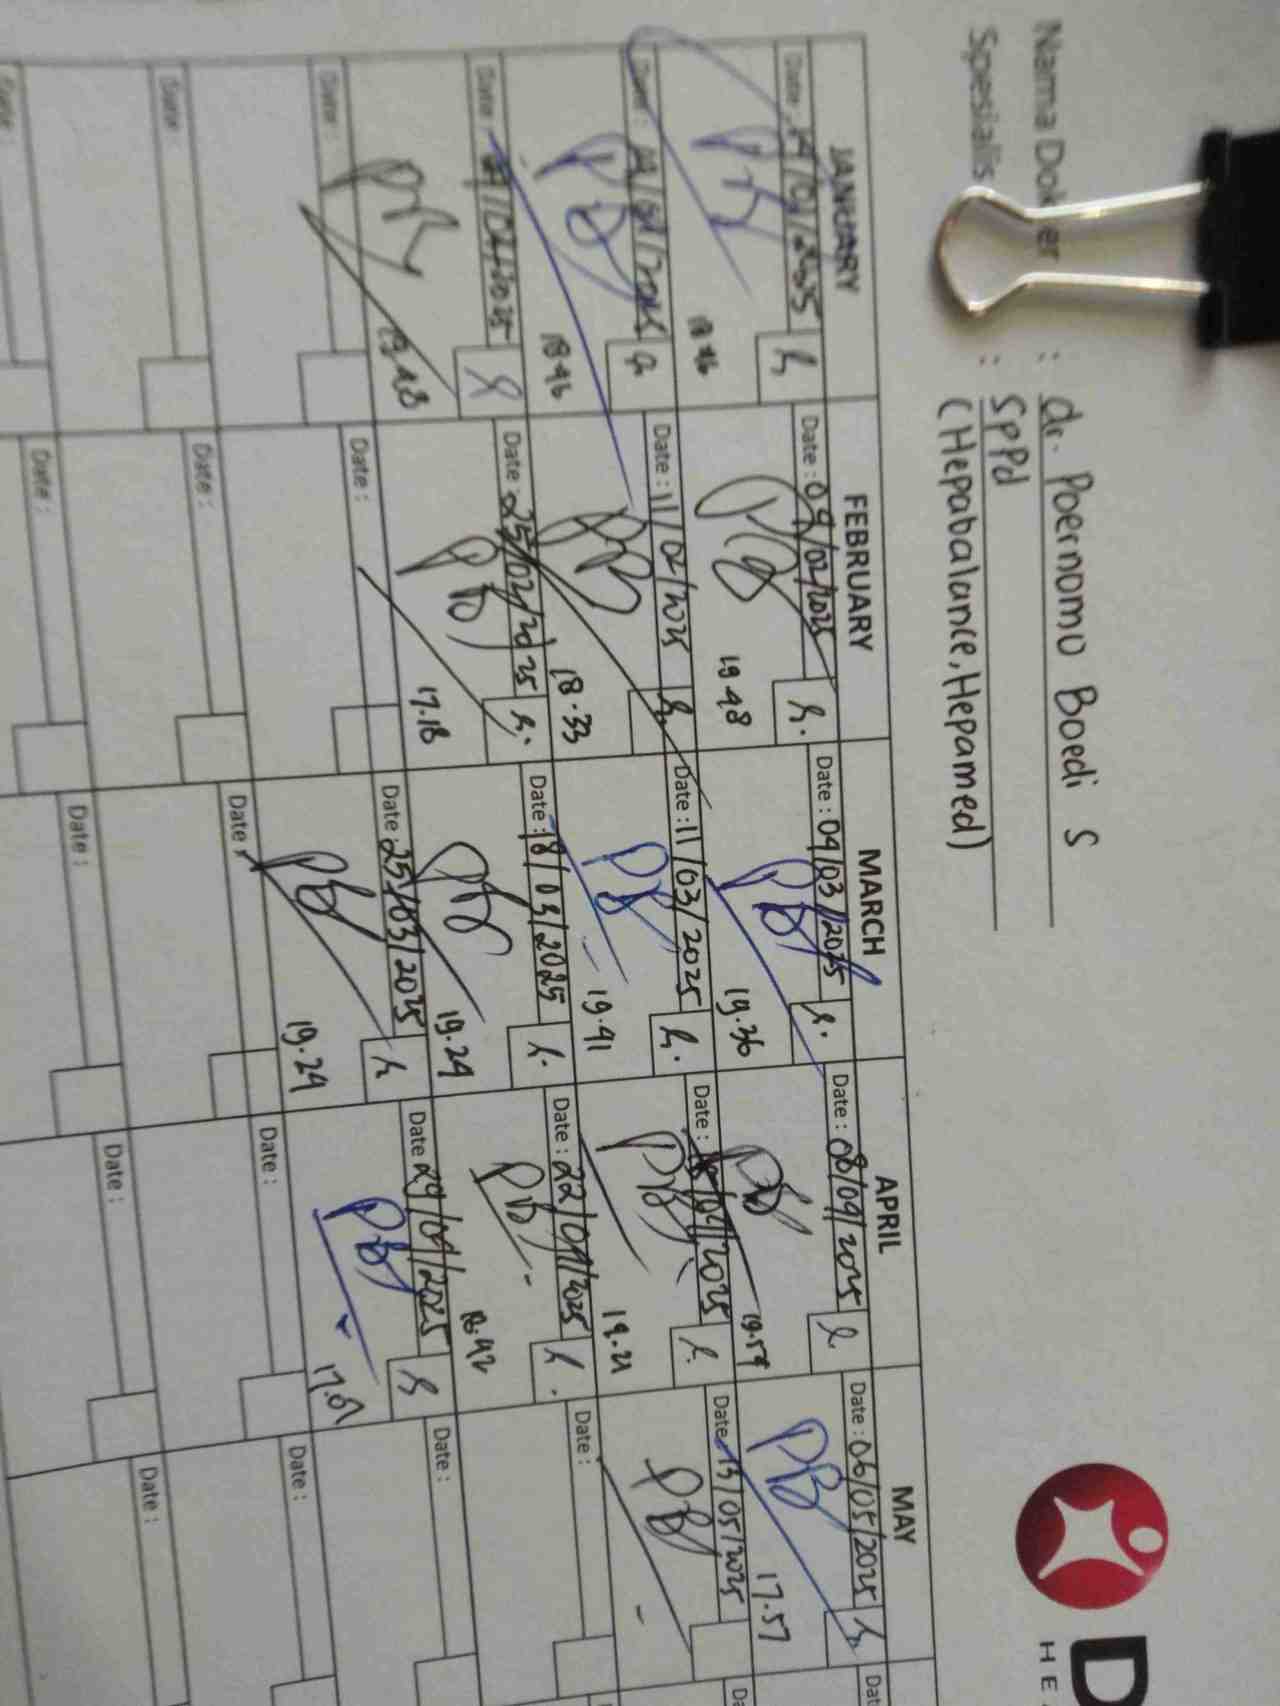 Nama Dokter : dr. Poernomo Boedi S
Spesialis : SpPd
(Hepabalance, Hepamed)
D
HE
JANUARY FEBRUARY MARCH APRIL MAY
Date : 14/01/2025 Date : 04/02/2025 Date : 04/03/2025 Date : 08/04/2025 Date : 06/05/2025 Dat
18.46 19.48 19.36 19.54 17.57
Date : Date : 11/02/2025 Date : 11/03/2025 Date : 15/04/2025 Date : 13/05/2025 Da
18.46 18.33 19.41 19.21
Date : Date : 25/02/2025 Date : 18/03/2025 Date : 22/04/2025 Date :
19.48 17.18 19.24 18.42
Date : Date : Date : 25/03/2025 Date : 29/04/2025 Date :
19.24
Date : Date : Date : Date : Date :
Date : Date : Date : Date : Date :